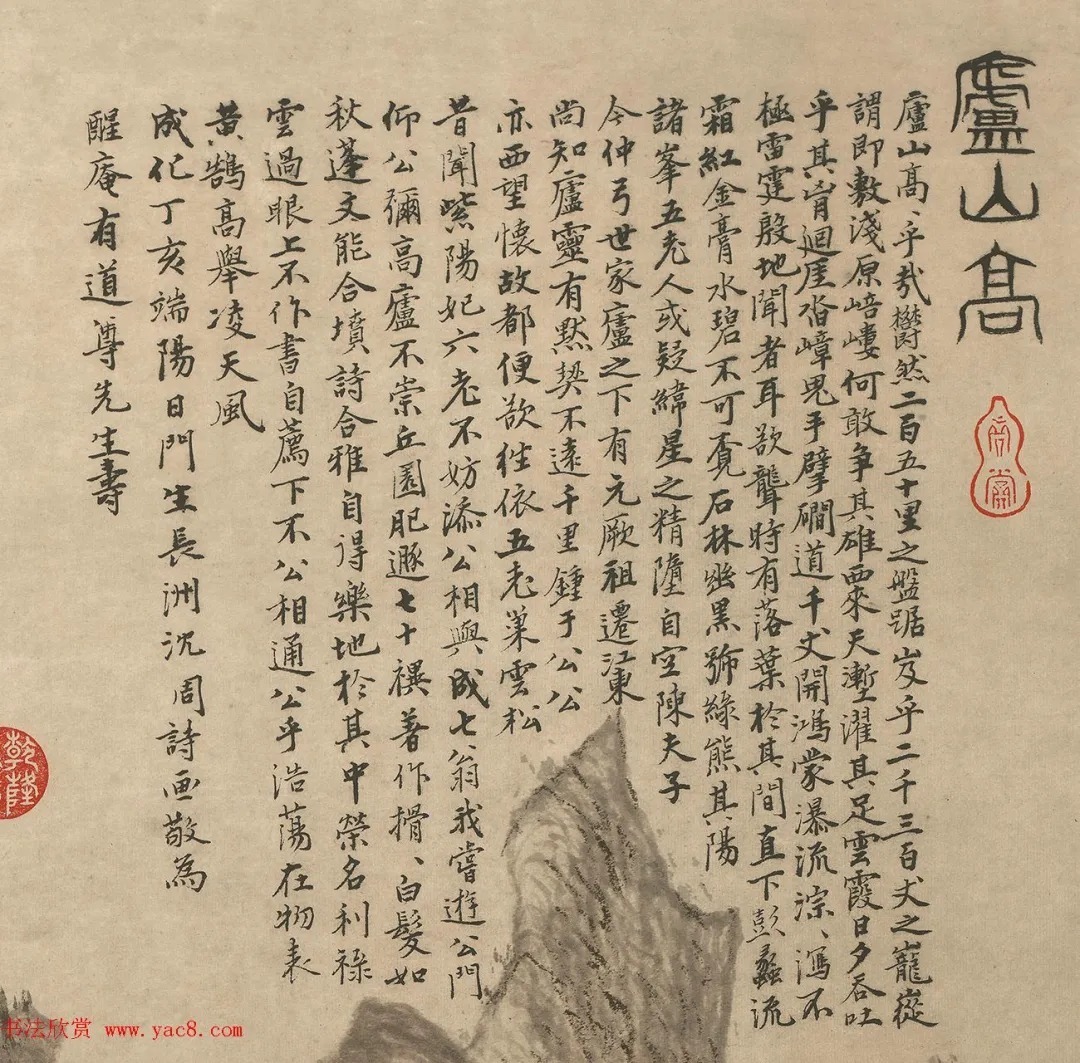 廬山高
廬山高、乎哉鬱然二百五十里之盤踞岌乎二千三百丈之巃嵸
謂即敷淺原嵭嶁何敢争其雄西來天塹濯其足雲霞日夕吞吐
乎其胷迴厓沓嶂鬼手擘磵道千丈開鴻蒙瀑流淙、瀉不
極雷霆殷地聞者耳欲聾時有落葉於其間直下彭蠡流
霜紅金膏水碧不可覔石林幽黑號綠熊其陽
諸峯五老人或疑緯星之精隳自空陳夫子
今仲弓世家廬之下有元厥祖遷江東
尚知廬靈有默契不遠千里鍾于公公
亦西望懷故都便欲往依五老巢雲松
昔聞紫陽妃六老不妨添公相與成七翁我嘗遊公門
仰公彌高廬不崇丘園肥遯七十禩著作揹、白髮如
秋蓬文能合墳詩合雅自得樂地於其中榮名利祿
雲過眼上不作書自薦下不公相通公乎浩蕩在物表
黄鵠高舉凌天風
成化丁亥端陽日門生長洲沈周詩画敬為
醒庵有道尊先生壽
乾隆
书法欣赏 www.yac8.com